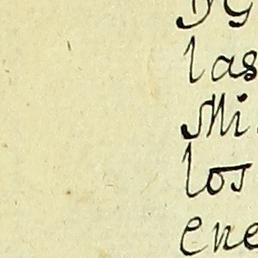 las
Mi
los
ene